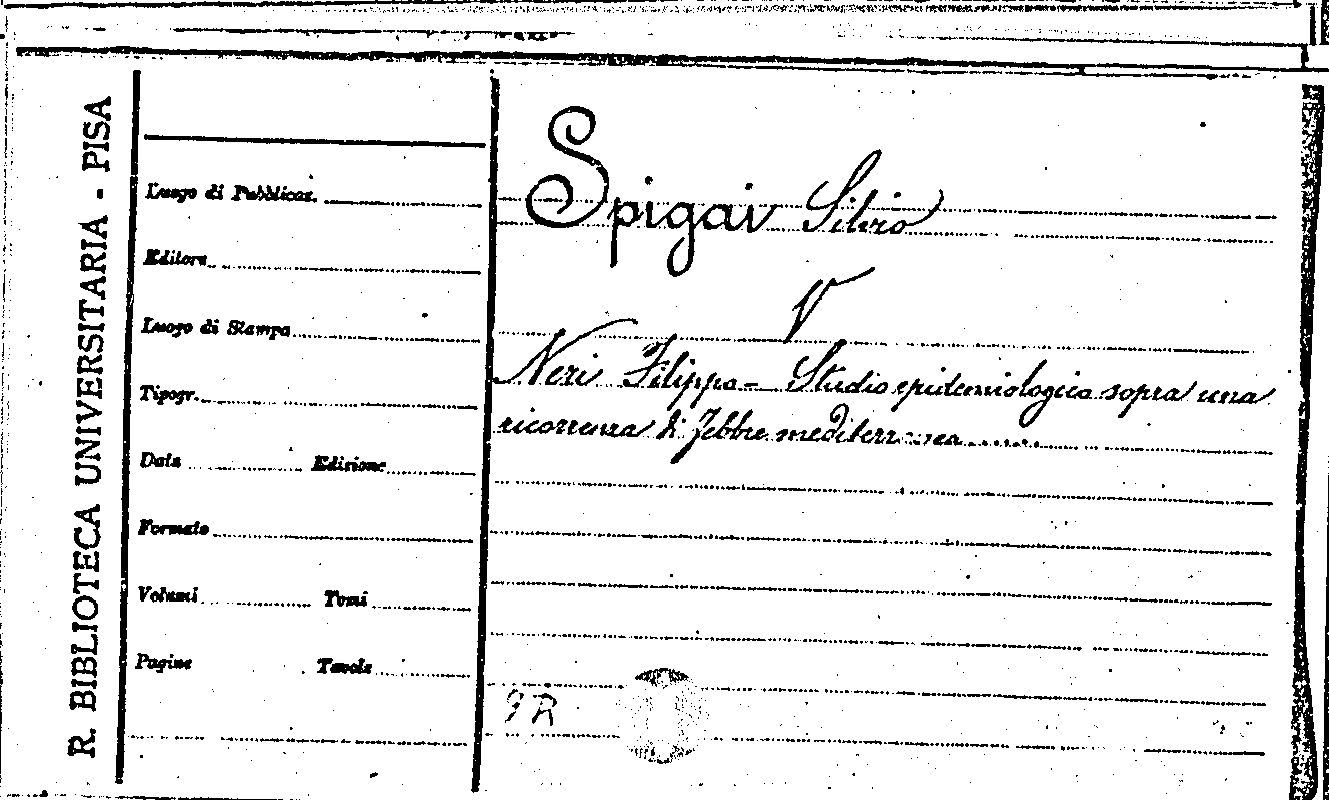 R. BIBLIOTECA UNIVERSITARIA - PISA
Luogo di Pubblicaz.
Editore
Luogo di Stampa
Tipogr.
Data Edizione
Formato
Volumi Tomi
Pagine Tavole
Spigai Silvio
V
Neri Filippo - Studio epidemiologico sopra una
ricorrenza di febbre mediterranea ......
9R